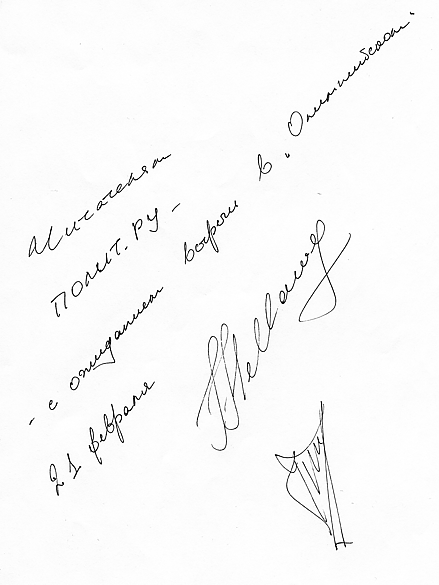 Читателям
ПОЛИТ.РУ -
- с ожиданием встречи в „Олимпийском“
21 февраля